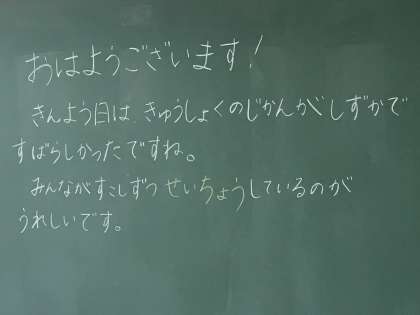 おはようございます！
きんよう日は、きゅうしょくのじかんがしずかで
すばらしかったですね。
みんながすこしずつ せいちょうしているのが
うれしいです。